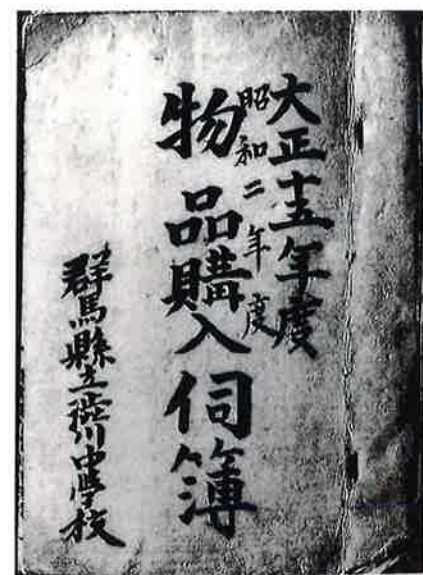 大正十五年度
昭和二年度
物品購入伺簿
群馬縣立澁川中學校